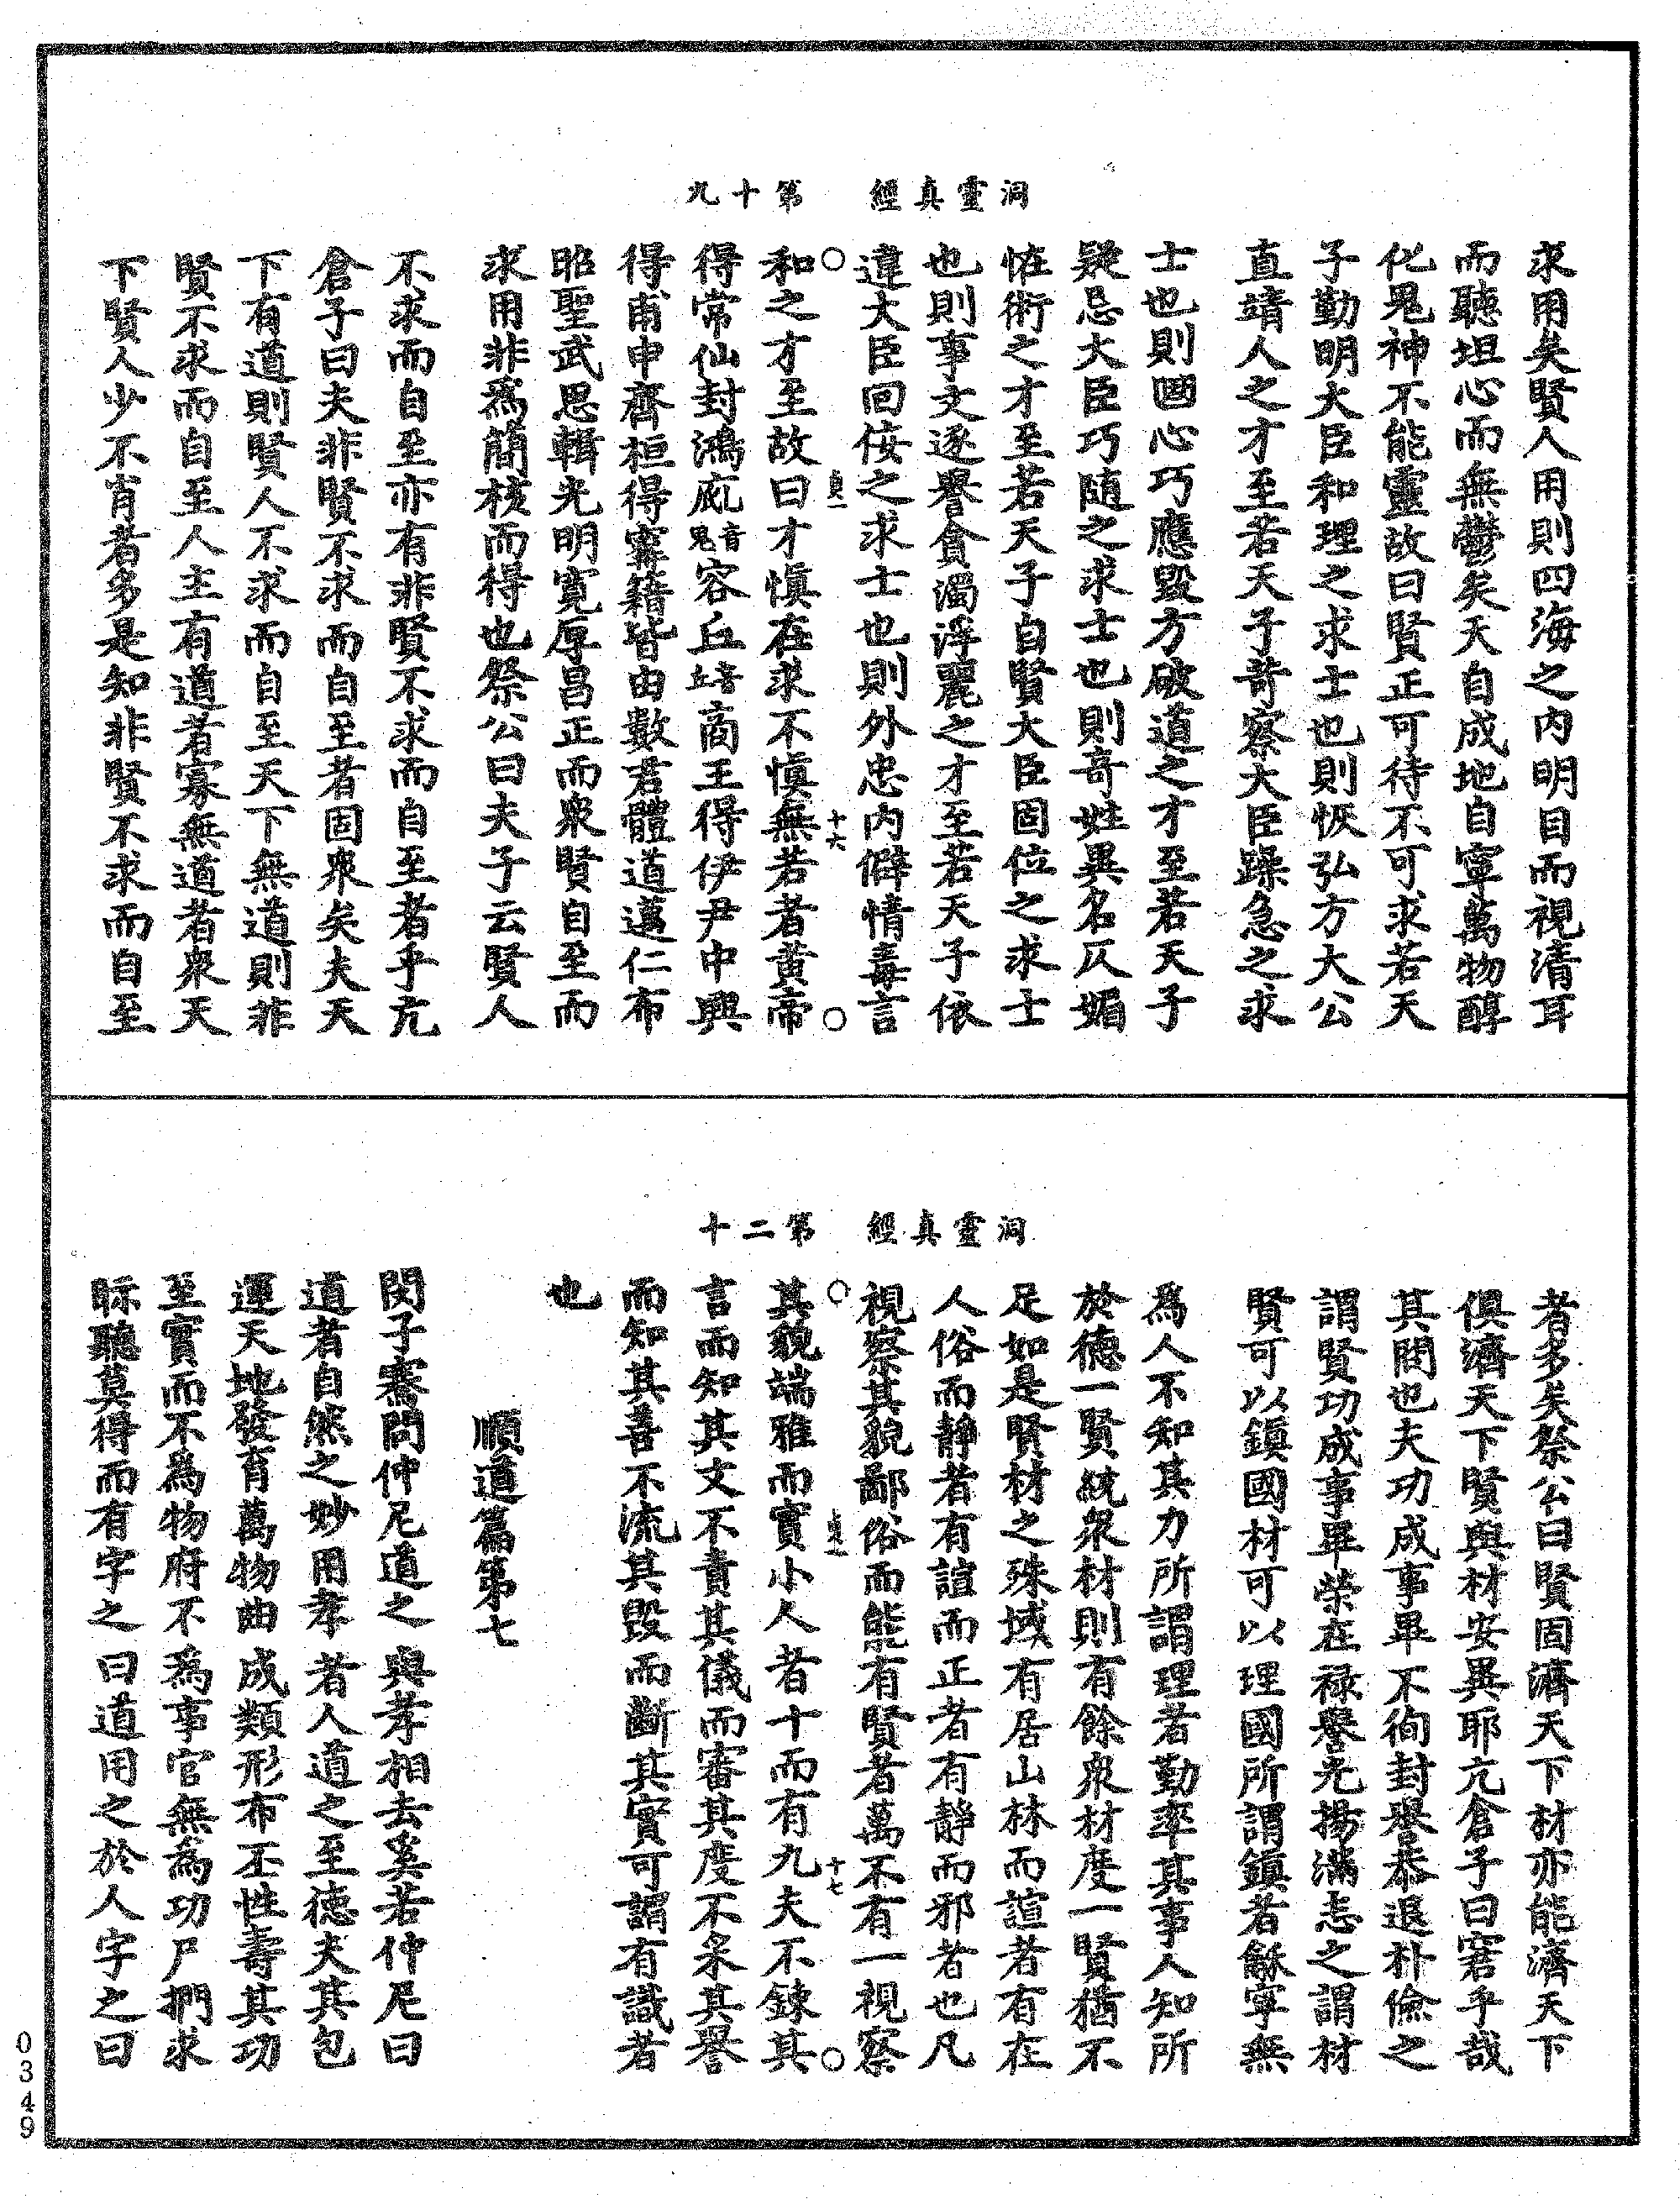 洞靈真經　第十九
求用矣賢人用則四海之内明目而視清耳
而聽坦心而無鬱矣天自成地自寧萬物醇
化鬼神不能靈故曰賢正可待不可求若天
子勤明大臣和理之求士也則恢弘方大公
直靖人之才至若天子苛察大臣躁急之求
士也則固心巧應毀方破道之才至若天子
疑忌大臣巧隨之求士也則奇姓異名仄媚
恠術之才至若天子自賢大臣固位之求士
也則事文逐譽貪濁浮麗之才至若天子依
違大臣回佞之求士也則外忠内僻情毒言
和之才至故曰才慎在求不慎無若者黄帝
得常仙封鴻㕙音鬼容丘培商王得伊尹中興
得甫申齊桓得寗籍皆由數君體道邁仁布
昭聖武思輯光明寬厚昌正而衆賢自至而
求用非為簡核而得也祭公曰夫子云賢人
不求而自至亦有非賢不求而自至者乎亢
倉子曰夫非賢不求而自至者固衆矣夫天
下有道則賢人不求而自至天下無道則非
賢不求而自至人主有道者寡無道者衆天
下賢人少不肖者多是知非賢不求而自至
貞一　十六
洞靈真經　第二十
者多矣祭公曰賢固濟天下材亦能濟天下
俱濟天下賢與材安異耶亢倉子曰窘乎哉
其問也夫功成事畢不徇封譽恭退朴儉之
謂賢功成事畢榮在禄譽光揚滿志之謂材
賢可以鎮國材可以理國所謂鎮者龢寧無
為人不知其力所謂理者勤率其事人知所
於德一賢統衆材則有餘衆材度一賢猶不
足如是賢材之殊域有居山林而諠者有在
人俗而静者有諠而正者有静而邪者也凡
視察其貌鄙俗而能有賢者萬不有一視察
其貌端雅而實小人者十而有九夫不鍊其
言而知其文不責其儀而審其度不釆其譽
而知其善不流其毁而斷其實可謂有識者
也
順道篇第七
閔子騫問仲尼道之與孝相去奚若仲尼曰
道者自然之妙用孝者人道之至德夫其包
運天地發育萬物曲成類形布丕性壽其功
至實而不為物府不為事官無為功尸捫求
眎聽莫得而有字之曰道用之於人字之曰
貞一　十七
0349